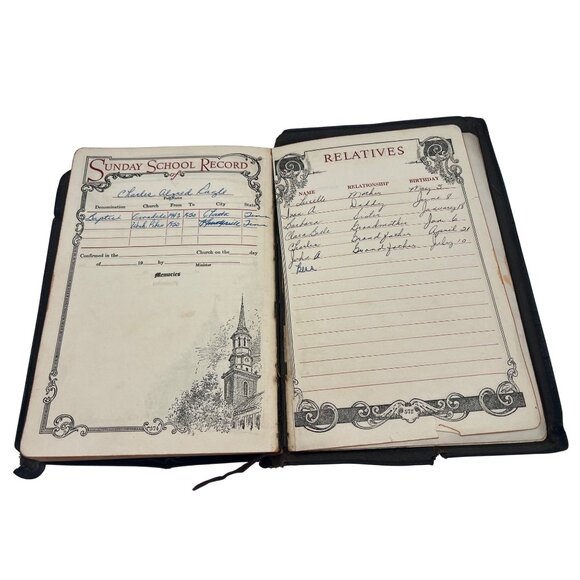 SUNDAY SCHOOL RECORD
of
Charles Alfred
Full Name
Denomination Church From To City State
Baptist 1943 1950 Tenn
Oak Pike 1950 Tenn
Confirmed in the Church on the day
of 19 by
Minister
Memories
RELATIVES
NAME RELATIONSHIP BIRTHDAY
Lucille Mother May 3
Joe A. Daddy June 8
Barbara Sister January 18
Clara Belle Grandmother Jan 6
Charlie Grandfather April 21
John A Grandfather July 10